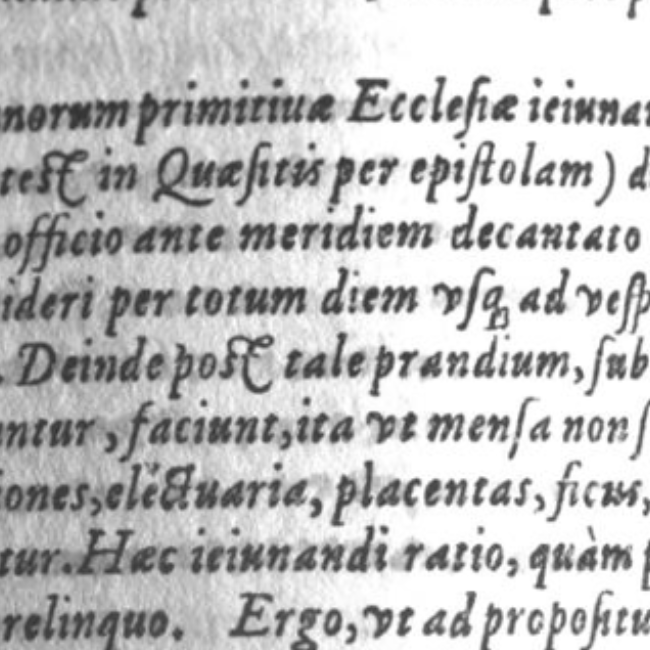 norum primitiuæ Ecclesiæ ieiunan
test in Quæsitis per epistolam) d
officio ante meridiem decantato
ideri per totum diem vsq; ad vesp
. Deinde post tale prandium, sub
ntur, faciunt, ita vt mensa non s
iones, electuaria, placentas, ficus,
tur. Hæc ieiunandi ratio, quàm p
relinquo. Ergo, vt ad propositu